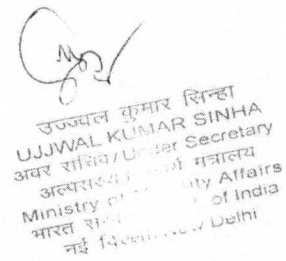 उज्ज्वल कुमार सिन्हा
UJJWAL KUMAR SINHA
अवर सचिव/Under Secretary
मंत्रालय
Ministry of Affairs
भारत of India
नई Delhi